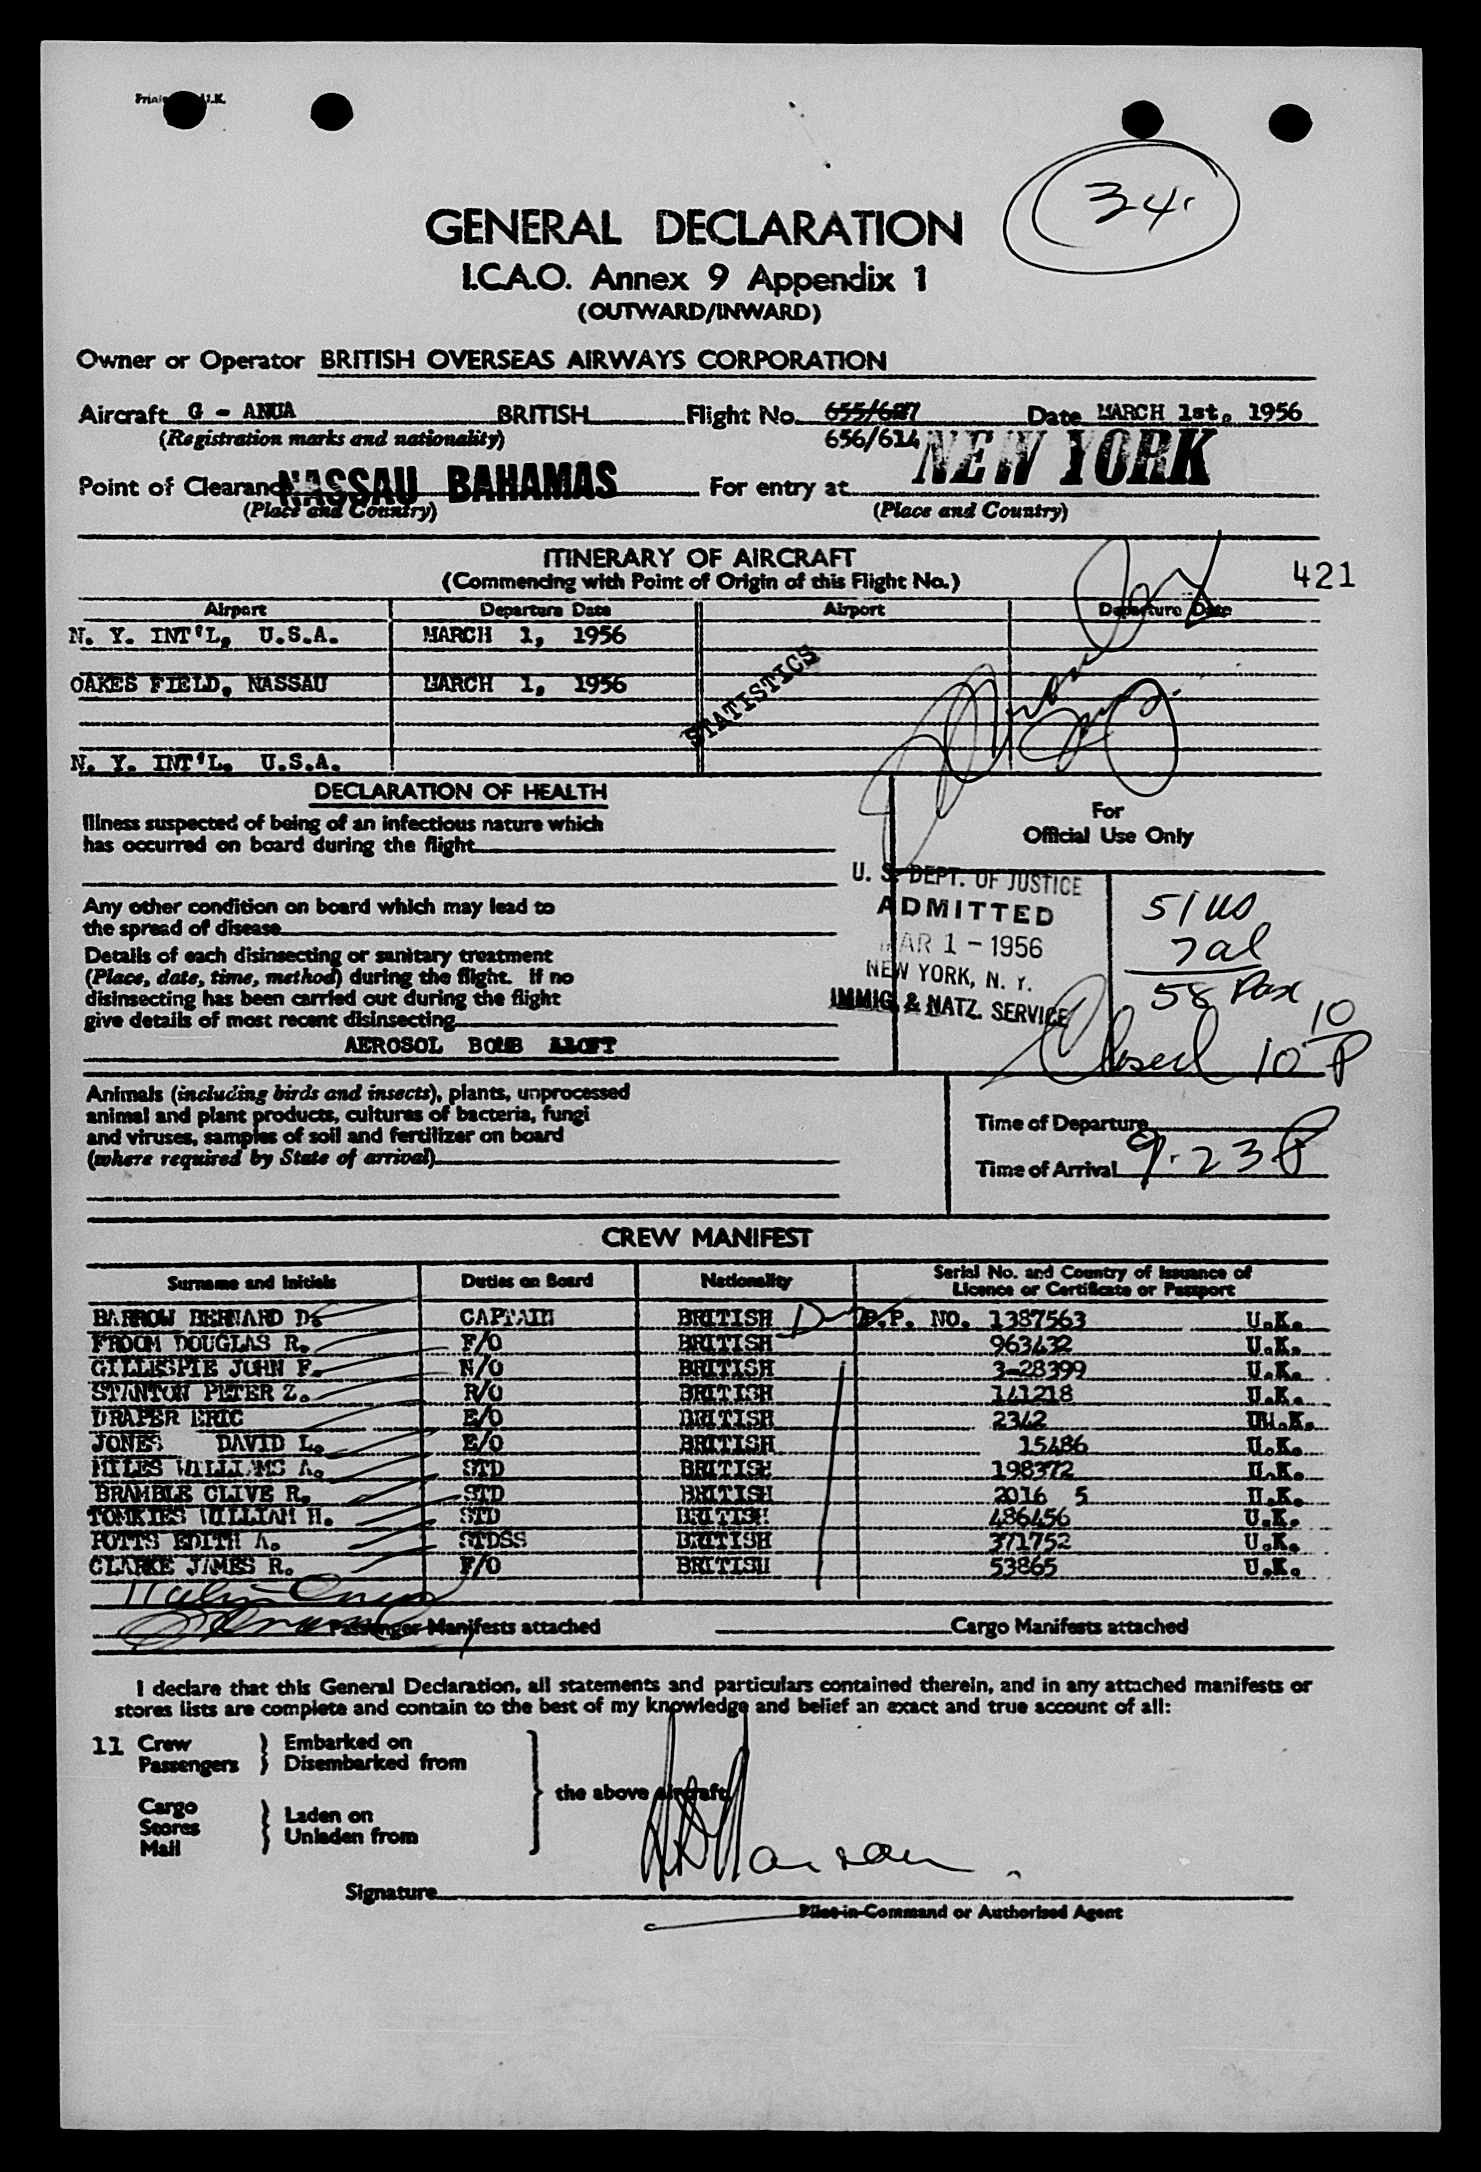 Printed U.K.
34
GENERAL DECLARATION
I.C.A.O. Annex 9 Appendix 1
(OUTWARD/INWARD)
Owner or Operator BRITISH OVERSEAS AIRWAYS CORPORATION
Aircraft G - ANUA BRITISH Flight No. 655/627 Date MARCH 1st. 1956
(Registration marks and nationality) 656/614
Point of Clearance NASSAU BAHAMAS For entry at NEW YORK
(Place and Country) (Place and Country)
ITINERARY OF AIRCRAFT
(Commencing with Point of Origin of this Flight No.)
421
Airport Departure Date Airport Departure Date
N. Y. INT'L, U.S.A. MARCH 1, 1956
OAKES FIELD, NASSAU MARCH 1, 1956
STATISTICS
N. Y. INT'L. U.S.A.
DECLARATION OF HEALTH
Illness suspected of being of an infectious nature which
has occurred on board during the flight
For
Official Use Only
Any other condition on board which may lead to
the spread of disease
Details of each disinsecting or sanitary treatment
(Place, date, time, method) during the flight. If no
disinsecting has been carried out during the flight
give details of most recent disinsecting
AEROSOL BOMB ALOFT
U. S. DEPT. OF JUSTICE
ADMITTED
MAR 1 - 1956
NEW YORK, N. Y.
IMMIG. & NATZ. SERVICE
51 us
7 al
58 Pax
Closed 10 10 P
Animals (including birds and insects), plants, unprocessed
animal and plant products, cultures of bacteria, fungi
and viruses, samples of soil and fertilizer on board
(where required by State of arrival)
Time of Departure
Time of Arrival 9.23 P
CREW MANIFEST
Surname and Initials Duties on Board Nationality Serial No. and Country of Issuance of
Licence or Certificate or Passport
BARROW BERNARD D. CAPTAIN BRITISH B.P. NO. 1387563 U.K.
FROOM DOUGLAS R. F/O BRITISH 963432 U.K.
GILLESPIE JOHN F. N/O BRITISH 3-28399 U.K.
STANTON PETER Z. R/O BRITISH 141218 U.K.
DRAPER ERIC E/O BRITISH 2342 U.K.
JONES DAVID L. E/O BRITISH 15486 U.K.
MILES WILLIAMS A. STD BRITISH 198372 U.K.
BRAMBLE CLIVE R. STD BRITISH 2016 5 U.K.
TOMKIES WILLIAM H. STD BRITISH 486456 U.K.
POTTS EDITH A. STDSS BRITISH 371752 U.K.
CLARKE JAMES R. F/O BRITISH 53865 U.K.
Passenger Manifests attached Cargo Manifests attached
I declare that this General Declaration, all statements and particulars contained therein, and in any attached manifests or
stores lists are complete and contain to the best of my knowledge and belief an exact and true account of all:
11 Crew Embarked on
Passengers Disembarked from
the above aircraft
Cargo
Stores Laden on
Mail Unladen from
Signature
Pilot-in-Command or Authorised Agent